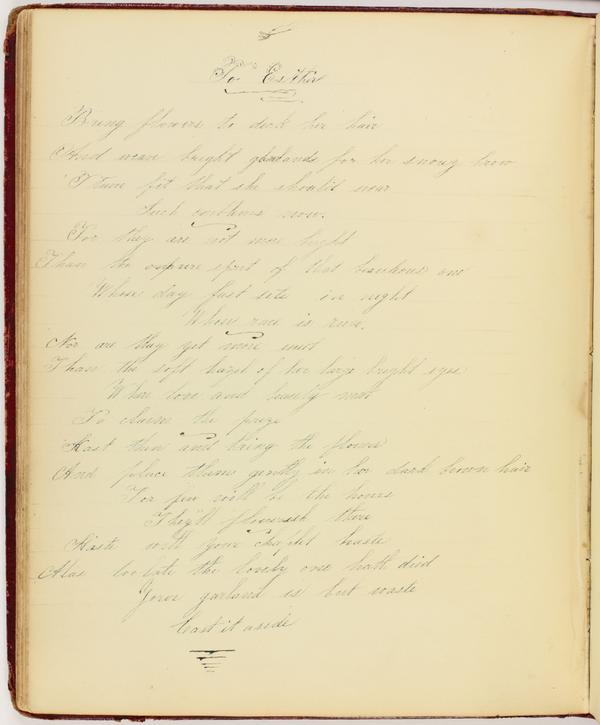 To Esther
Bring flowers to deck her hair
And weave bright garlands for her snowy brow
'Tune fit that she should wear
Such emblems now.
For they are not more bright
Than the pure spirit of that beauteous one
Whose day fast sets in night
Whose race is run.
Nor are they yet more meet
Than the soft hazel of her large bright eyes
Where love and beauty meet
To claim the prize
Hast then and bring the flowers
And place them gently in her dark brown hair
For few will be the hours
They'll flourish there
Haste with your chaplet haste
Alas too late the lovely one hath died
Your garland is but waste
Cast it aside